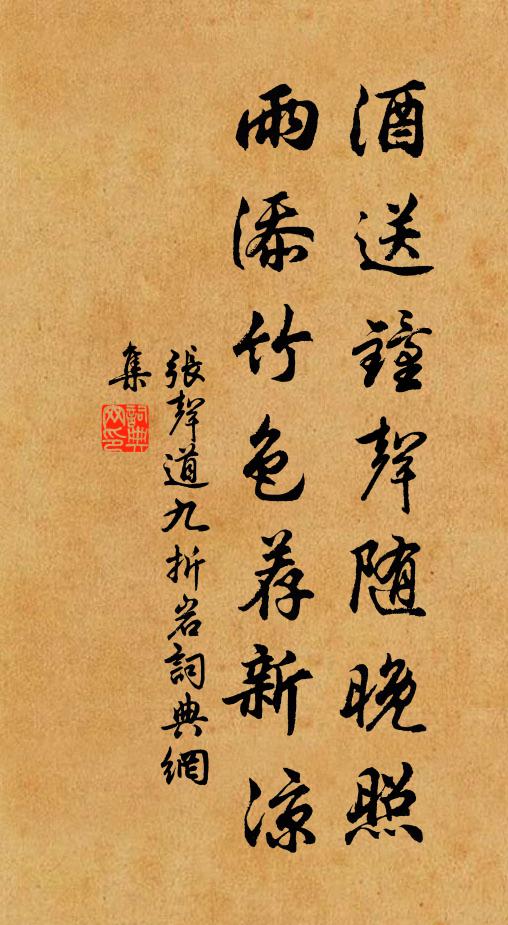 酒送鐘聲随晚照
雨添竹色荐新凉
張聲道九折岩詞典網
集
詞典
网印